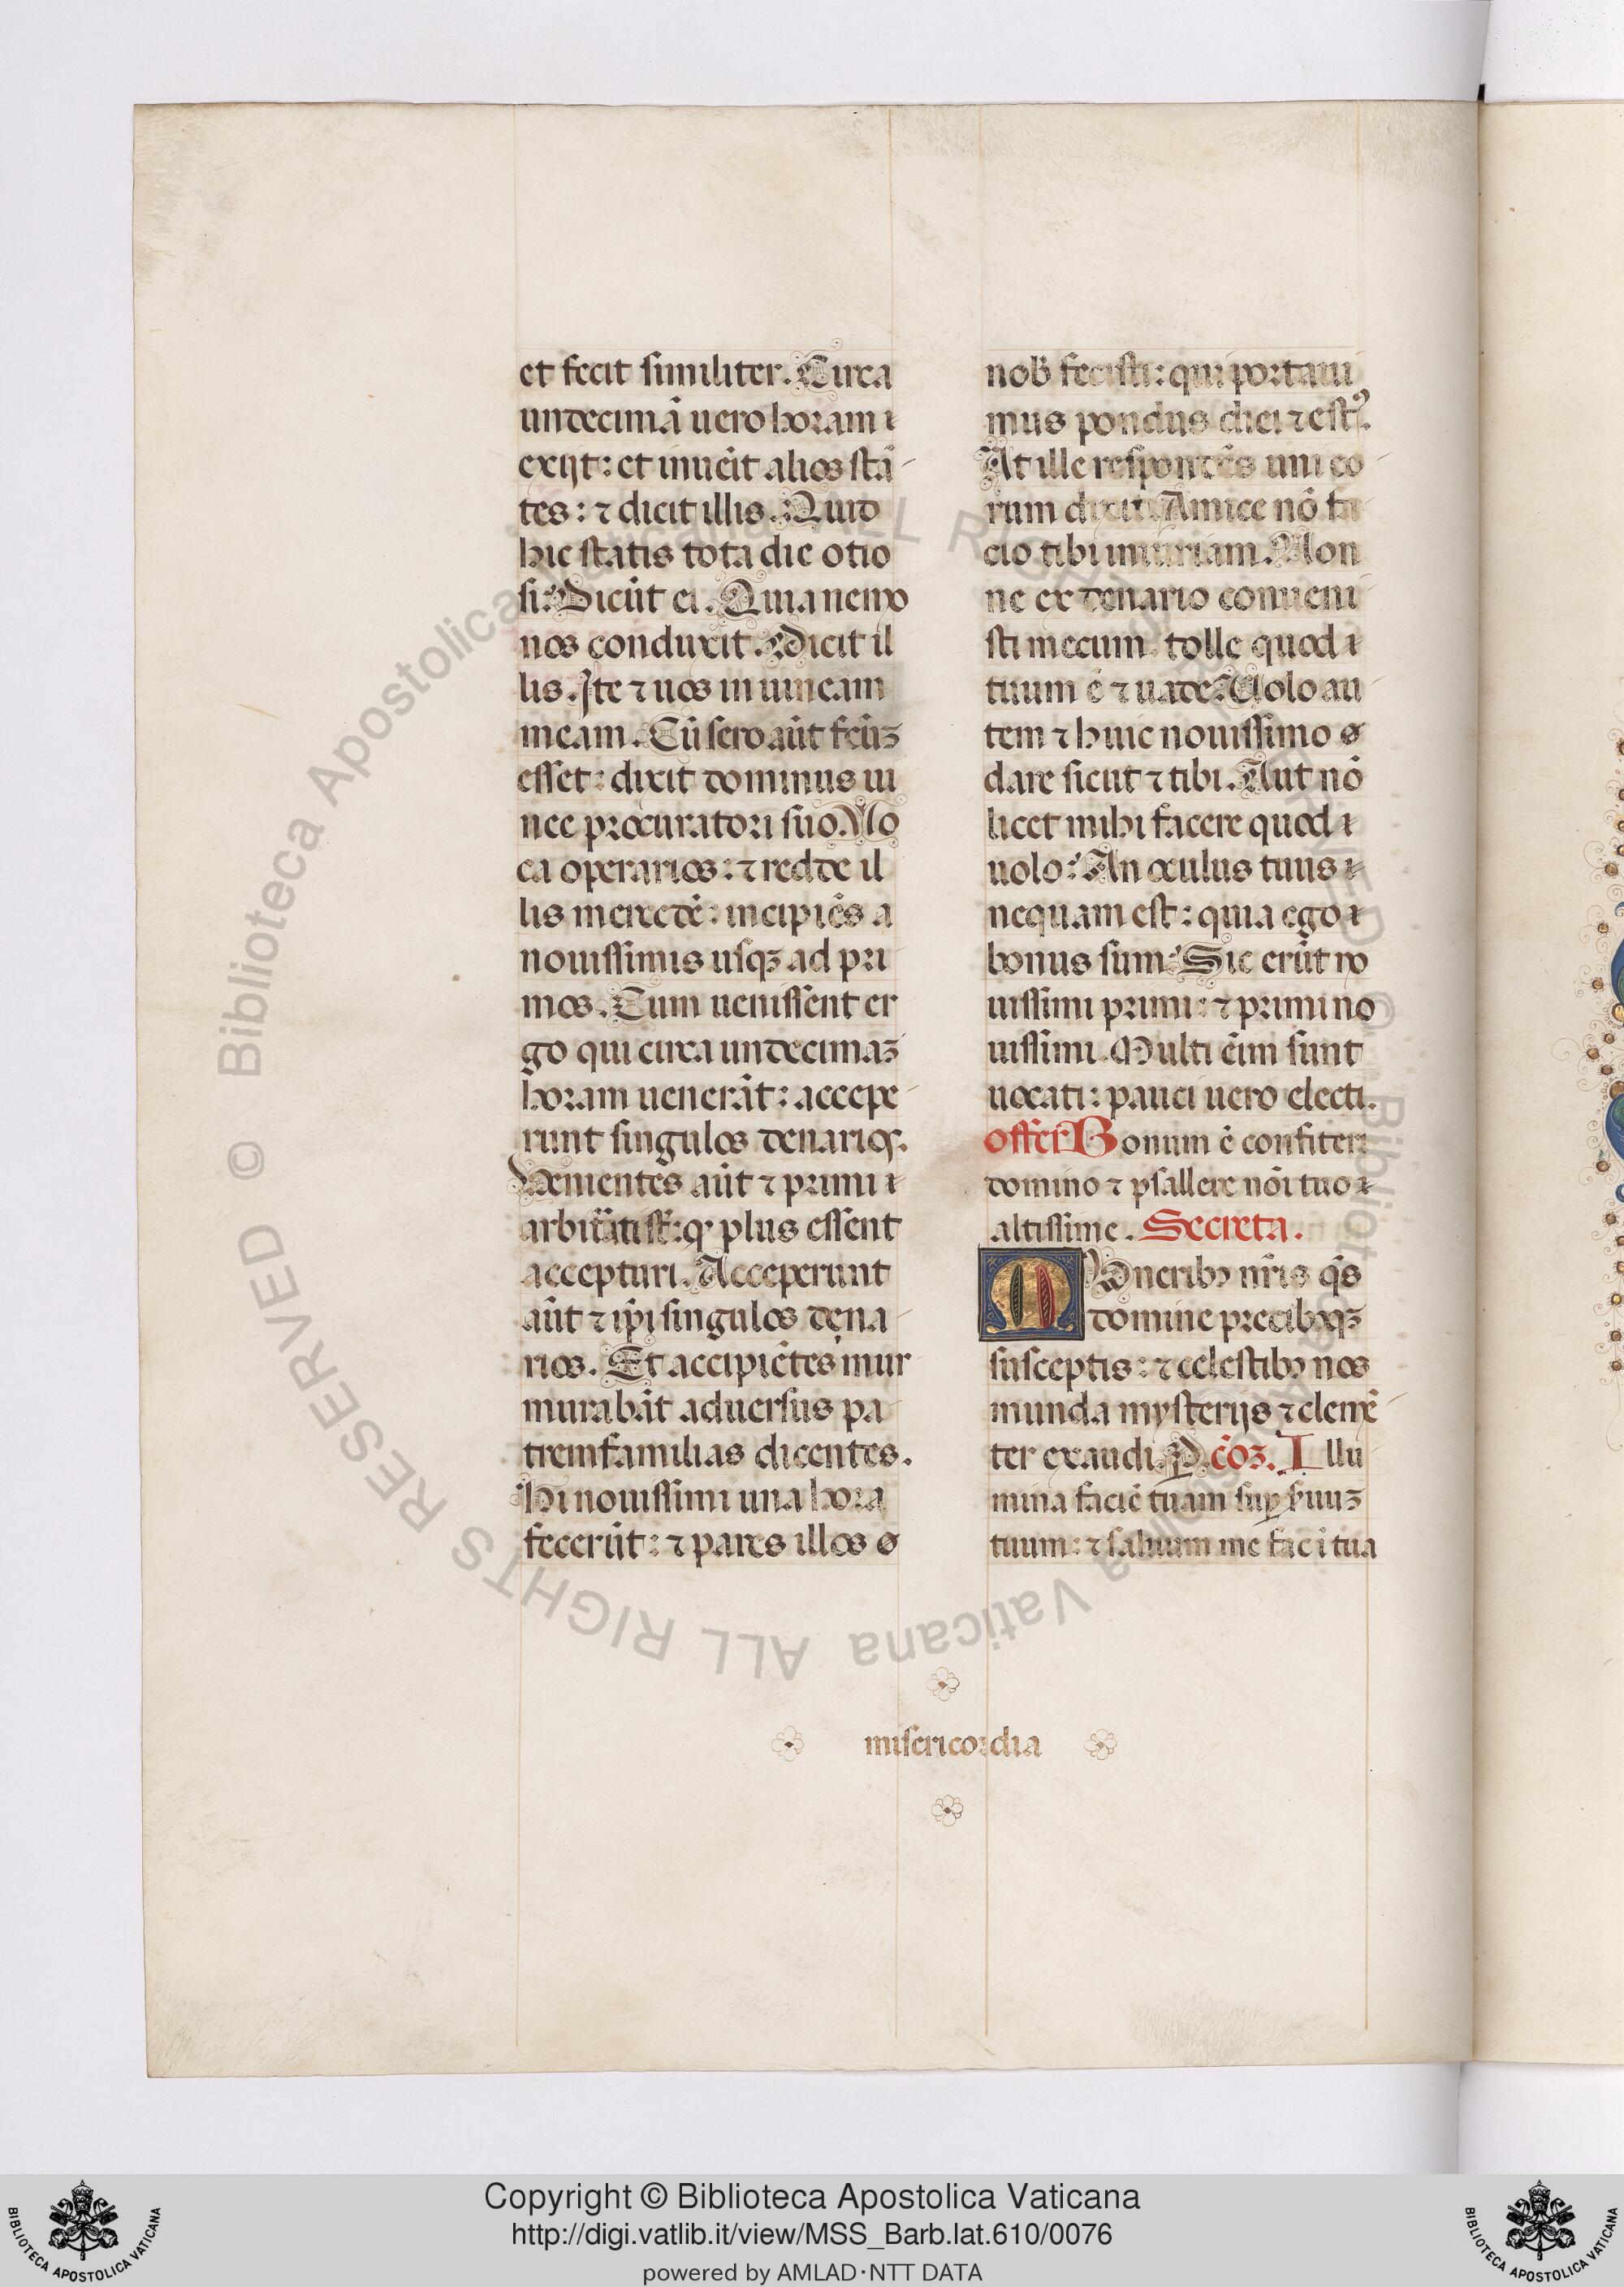 et fecit similiter. Circa
undecimā uero horam
exijt: et inueīt alios stā
tes: ⁊ dicit illis. Quid
hic statis tota die otio
si? Dicūt ei. Quia nemo
nos conduxit. Dicit il
lis. Ite ⁊ uos in uineam
meam. Cū sero aūt fcūꝫ
esset: dixit dominus ui
nee procuratori suo. Uo
ca operarios: ⁊ redde il
lis mercedē: incipiēs a
nouissimis usqꝫ ad pri
mos. Cum uenissent er
go qui circa undecimaꝫ
horam uenerāt: accepe
runt singulos denarioꝭ.
Uenientes aūt ⁊ primi
arbitrati st̄: ꝙ plus essent
accepturi. Acceperunt
aūt ⁊ ip̄i singulos dena
rios. Et accipiētes mur
murabāt aduersus pa
tremfamilias dicentes.
Hi nouissimi una hora
fecerūt: ⁊ pares illos
nob̄ fecisti: qui portaui
mus pondus diei ⁊ estꝰ.
At ille respondēs uni eo
rum dixit. Amice nō fa
cio tibi iniuriam. Non
ne ex denario conueni
sti mecum tolle quod
tuum ē ⁊ uade. Uolo au
tem ⁊ huic nouissimo
dare sicut ⁊ tibi. Aut nō
licet mihi facere quod
uolo? An oculus tuus
nequam est: quia ego
bonus sum? Sic erūt no
uissimi primi: ⁊ primi no
uissimi. Multi eīm sunt
uocati: pauci uero electi.
Offer. Bonum ē confiteri
domino ⁊ psallere nōi tuo
altissime. Secreta.
MUneribꝰ nr̄is qs̄
domine precibusqꝫ
susceptis: ⁊ celestibꝰ nos
munda mysterijs ⁊ clemē
ter exaudi. P. D. cōꝫ. Illu
mina faciē tuam sup̱ s̄uuꝫ
tuum: ⁊ saluum me fac ī tua
misericordia
Copyright © Biblioteca Apostolica Vaticana
http://digi.vatlib.it/view/MSS_Barb.lat.610/0076
powered by AMLAD·NTT DATA
BIBLIOTECA APOSTOLICA VATICANA
BIBLIOTECA APOSTOLICA VATICANA
© Biblioteca Apostolica Vaticana ALL RIGHTS RESERVED
© Biblioteca Apostolica Vaticana ALL RIGHTS RESERVED